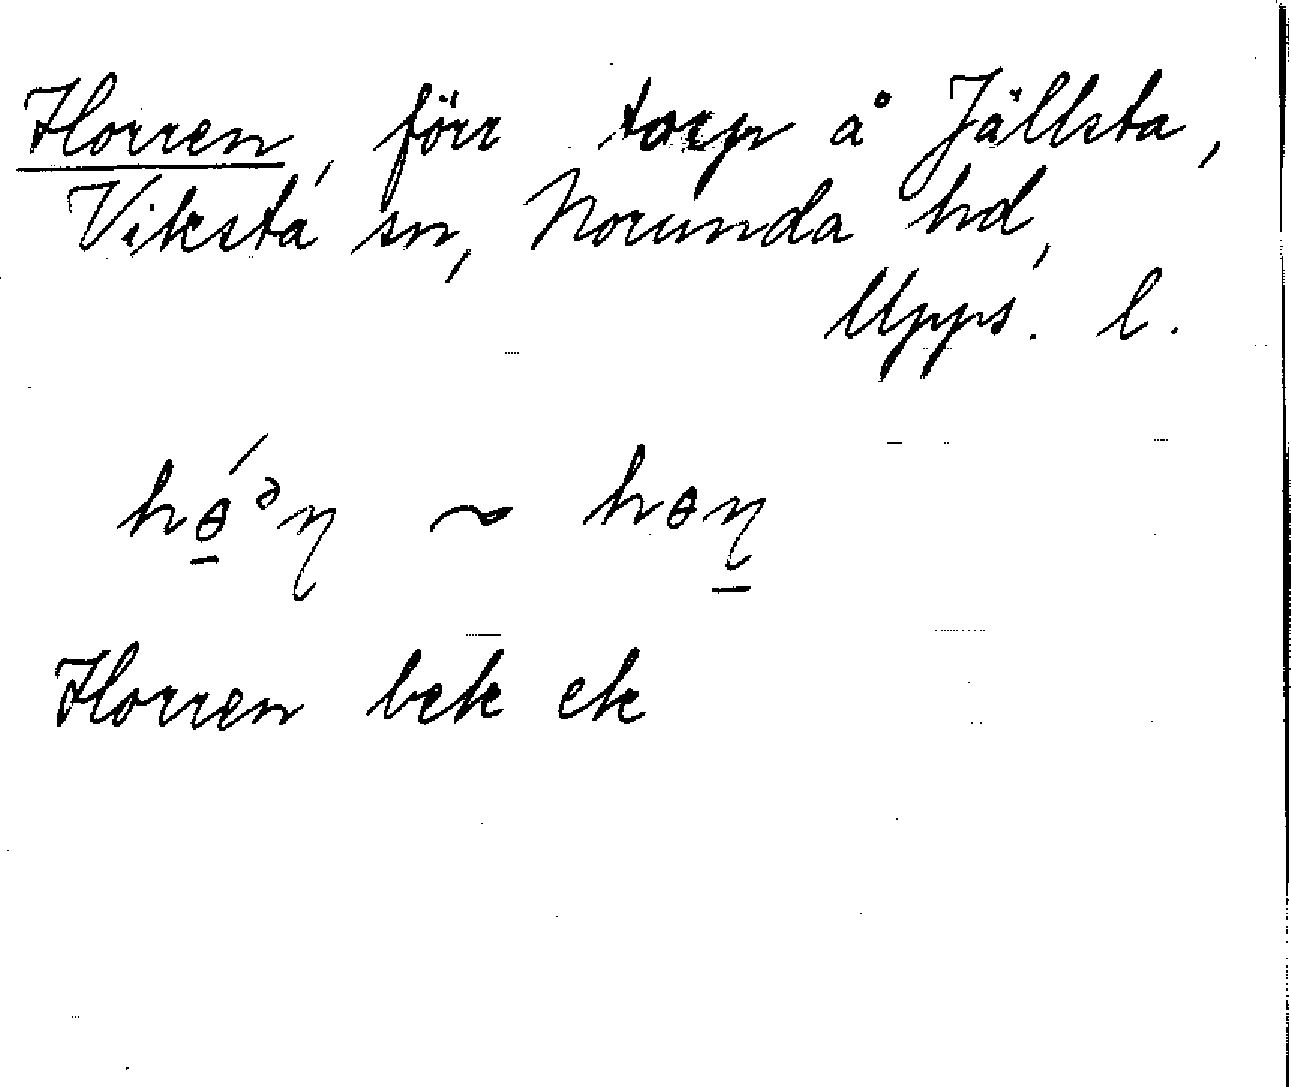 Horren, förr torp å Jällsta,
Viksta sn, Norunda hd,
Upps. l.
hɵ̲́ᵊɳ ~ hɵɳ̲
Horren bek ek